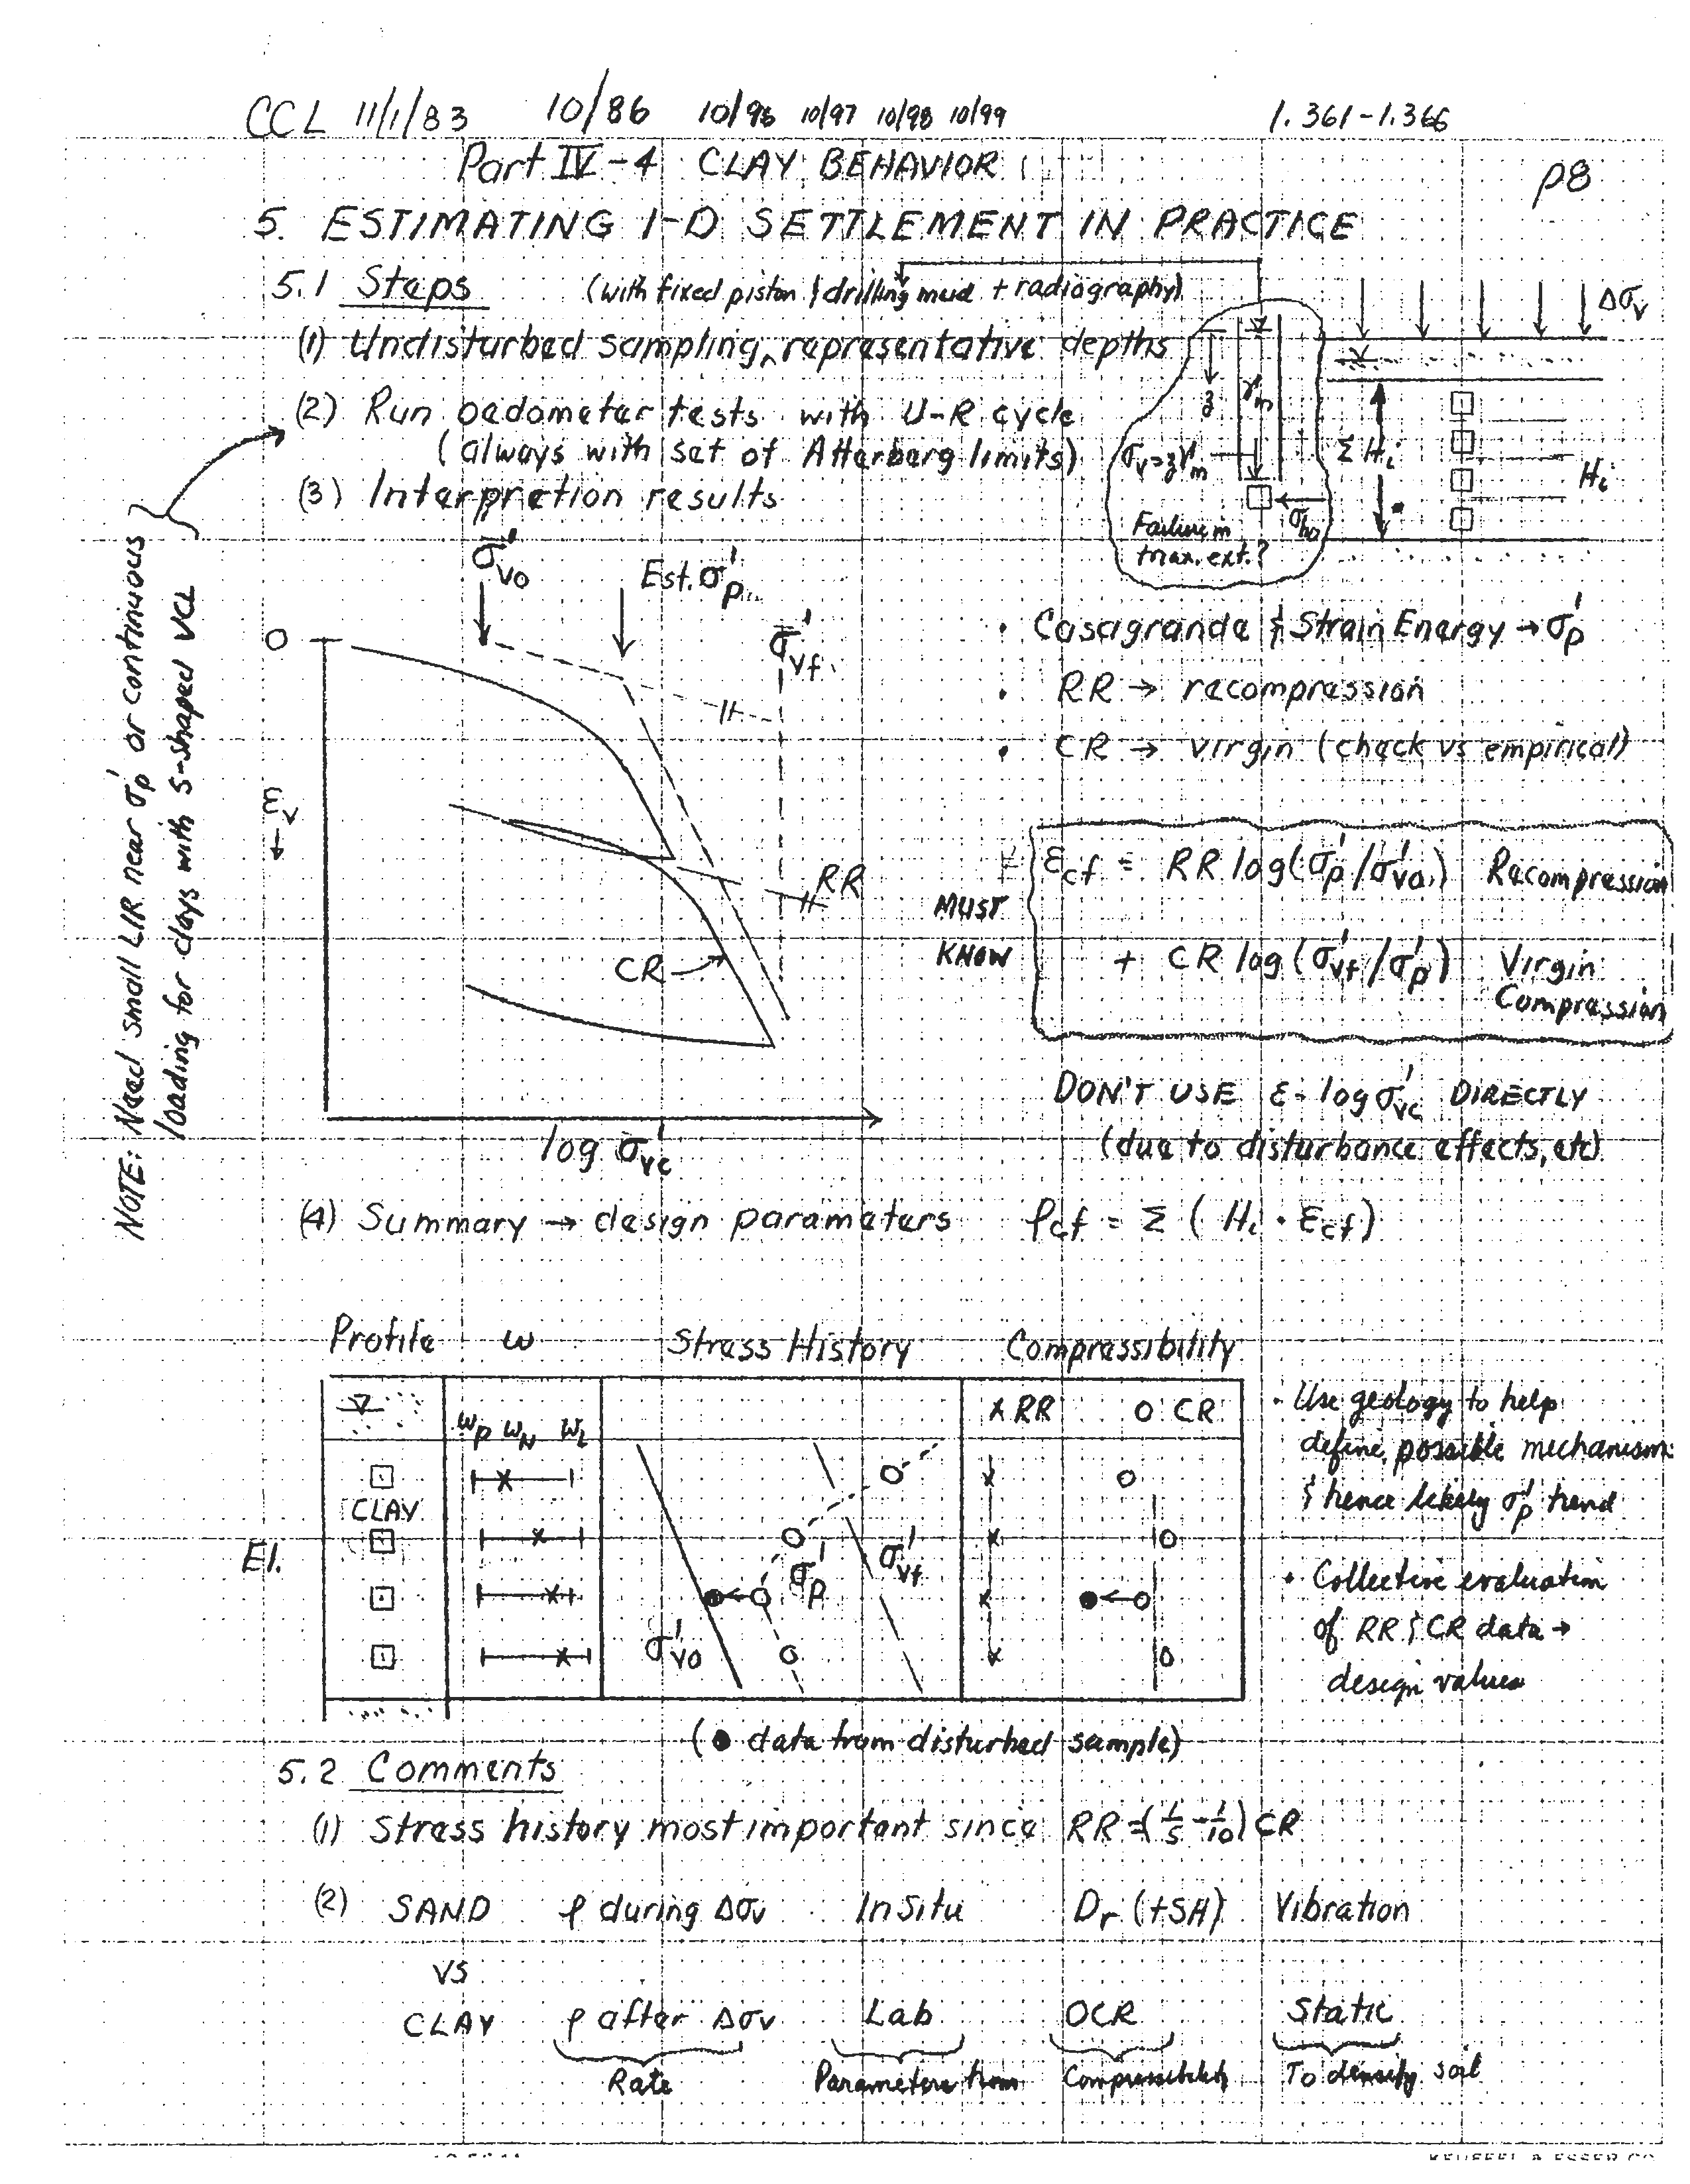 CCL 11/1/83 10/86 10/95 10/97 10/98 10/99 1.361-1.366
Part IV-4 CLAY BEHAVIOR
p8
5. ESTIMATING 1-D SETTLEMENT IN PRACTICE
5.1 Steps (with fixed piston & drilling mud + radiography)
(1) Undisturbed sampling, representative depths
(2) Run oedometer tests with U-R cycle
(always with set of Atterberg limits)
(3) Interpretion results
NOTE: Need small LIR near σ'p or continuous
loading for clays with S-shaped VCL
Δσv
z γm
σv=zγm
σho
Failure in
triax. ext.?
Σ Hi
Hi
σ'vo
Est. σ'p
σ'vf
0
εv
RR
CR
log σ'vc
• Casagrande & Strain Energy → σ'p
• RR → recompression
• CR → virgin (check vs empirical)
MUST
KNOW
εcf = RR log(σ'p/σ'vo) Recompression
+ CR log(σ'vf/σ'p) Virgin
Compression
DON'T USE ε-log σ'vc DIRECTLY
(due to disturbance effects, etc)
(4) Summary → design parameters ρcf = Σ (Hi · εcf)
Profile w Stress History Compressibility
wP wN wL
x RR o CR
CLAY
El.
σ'vo
σ'p
σ'vf
• Use geology to help
define possible mechanism
& hence likely σ'p trend
• Collective evaluation
of RR & CR data →
design values
(● data from disturbed sample)
5.2 Comments
(1) Stress history most important since RR=(1/5-1/10)CR
(2) SAND ρ during Δσv In Situ Dr (+SH) Vibration
vs
CLAY ρ after Δσv Lab OCR Static
Rate Parameters from Compressibility To densify soil
KEUFFEL & ESSER CO.